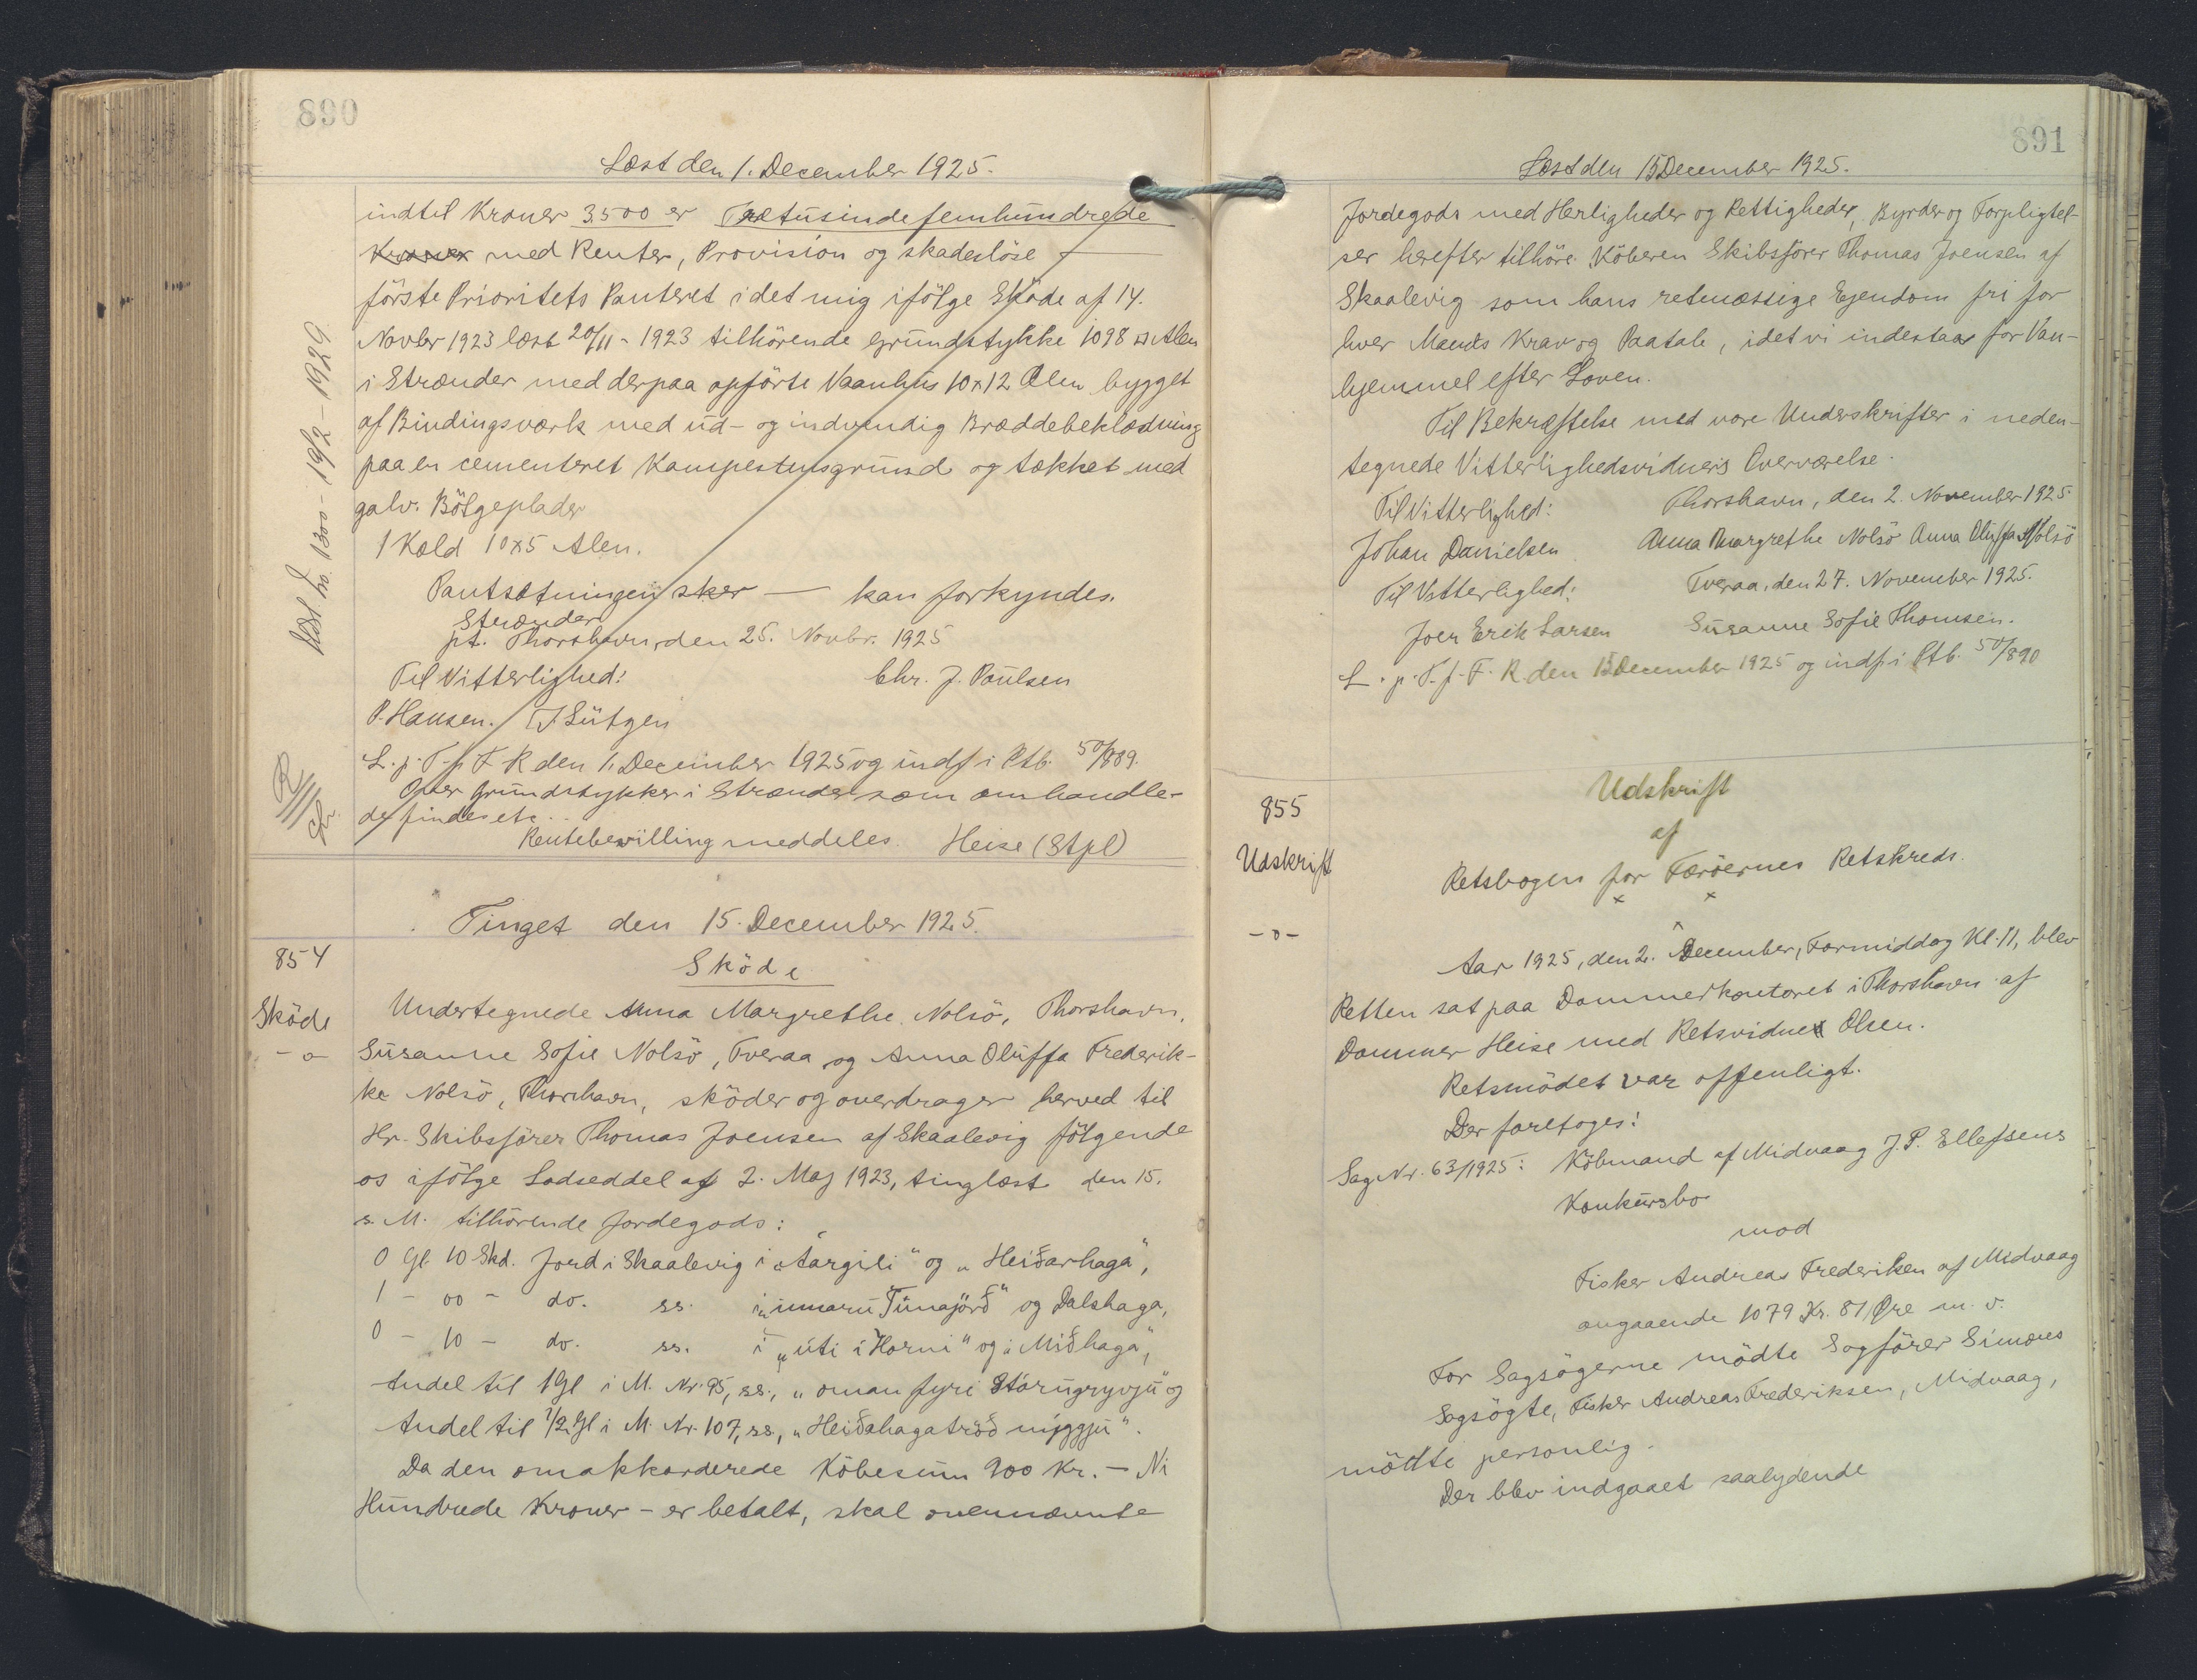 890
Læst den 1. December 1925.
indtil Kroner 3500 er Tretusindefemhundrede
Kroner med Renter, Provision og skadesløse
første Prioritets Panteret i det mig ifølge Skøde af 14.
Novbr 1923 læst 20/11 - 1923 tilhørende Grundstykke 1098 □ Alen
i Strænder med derpaa opførte Vaanhus 10 x 12 Alen bygget
af Bindingsværk med ud- og indvendig Bræddebeklædning
paa en cementeret Kampestensgrund og tækket med
galv. Bölgeplader
1 Kæld 10 x 5 Alen.
Pantsætningen sker — kan forkyndes.
Strænder
pt. Thorshavn, den 25. Novbr. 1925
Til Vitterlighed: Chr. J. Paulsen
P. Hansen. J. Lütgen
L. p. T. f. F. R den 1. December 1925 og indf i Ptb. 50/889.
Over Grundstykker i Strænder som omhandle-
de findes etc..
Rentebevilling meddeles. Heise (Stpl)
Læst Kr. 1300 - 19/2 - 1929
Tinget den 15. December 1925.
854
Sköde
-o-
Sköde
Undertegnede Anna Margrethe Nolsö, Thorshavn,
Susanne Sofie Nolsö, Tveraa og Anna Oluffa Frederik-
ke Nolsö, Thorshavn, sköder og overdrager herved til
Hr. Skibsförer Thomas Joensen af Skaalevig fölgende
os ifölge Lodseddel af 2. Maj 1923, tinglæst den 15.
s. M. tilhörende Jordegods:
0 Gl. 10 Skd. Jord i Skaalevig i „Aargili" og „Heiðarhaga",
1 - 00 - do. ss. i „innaru Túnajörð" og Dalshaga,
0 - 10 - do. ss. i „úti i Horni" og i Miðhaga",
Andel til 1 Gl i M. Nr. 95, ss., „oman fyri Stórugryvju" og
Andel til 1/2 Gl i M. Nr. 107, ss., „Heiðahagatröð nýggju".
Da den omakkorderede Köbesum 900 Kr. - Ni
Hundrede Kroner - er betalt, skal ovennævnte
891
Læst den 15 December 1925.
Jordegods med Herligheder og Rettigheder, Byrder og Forpligtel-
ser herefter tilhöre Köberen Skibsförer Thomas Joensen af
Skaalevig som hans retmæssige Ejendom fri for
hver Mands Krav og Paatale, idet vi indestaar for Van-
hjemmel efter Loven.
Til Bekræftelse med vore Underskrifter i neden-
tegnede Vitterlighedsvidners Overværelse.
Til Vitterlighed: Thorshavn, den 2. November 1925.
Johan Danielsen Anna Margrethe Nolsö Anna Oluffa Nolsö
Til Vitterlighed: Tveraa, den 27. November 1925.
Joen Erik Larsen Susanne Sofie Thomsen.
L. p. T. f. F. R den 15 December 1925 og indf i Ptb. 50/890
855
Udskrift
-o-
Udskrift
af
Retsbogen for Færöernes Retskreds.
Aar 1925, den 2. December, Formiddag Kl. 11, blev
Retten sat paa Dommerkontoret i Thorshavn af
Dommer Heise med Retsvidne Olsen.
Retsmödet var offenligt.
Der foretoges:
Sag Nr. 63/1925: Köbmand af Midvaag J. P. Ellefsens
Konkursbo
mod
Fisker Andreas Frederiksen af Midvaag
angaaende 1079 Kr. 81 Øre m. v.
For Sagsögerne mödte Sagförer Simons
Sagsögte, Fisker Andreas Frederiksen, Midvaag,
mödte personlig.
Der blev indgaaet saalydende